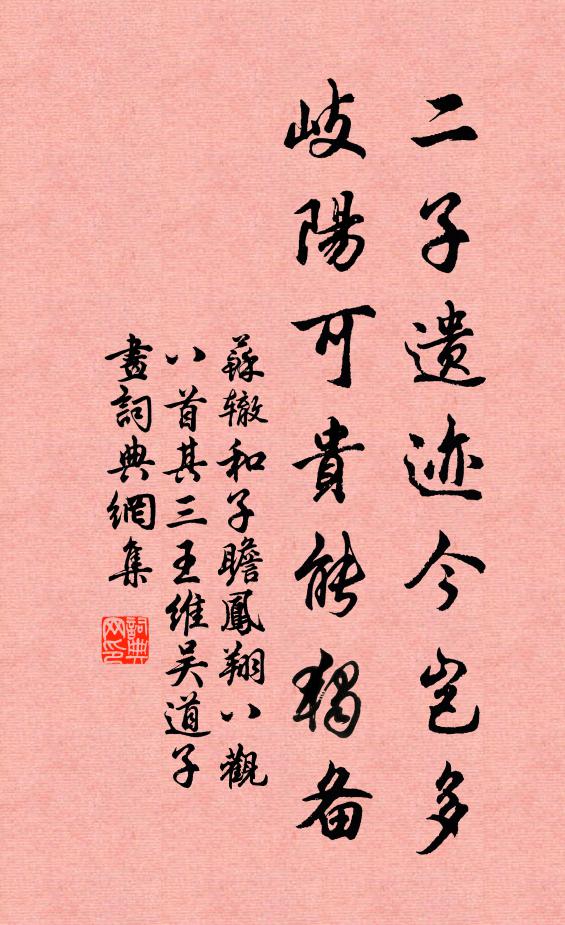 二子遗迹今岂多
岐陽可貴能獨备
蘇辙和子瞻鳳翔八觀
八首其三王維吴道子
畫詞典網集
詞典网印